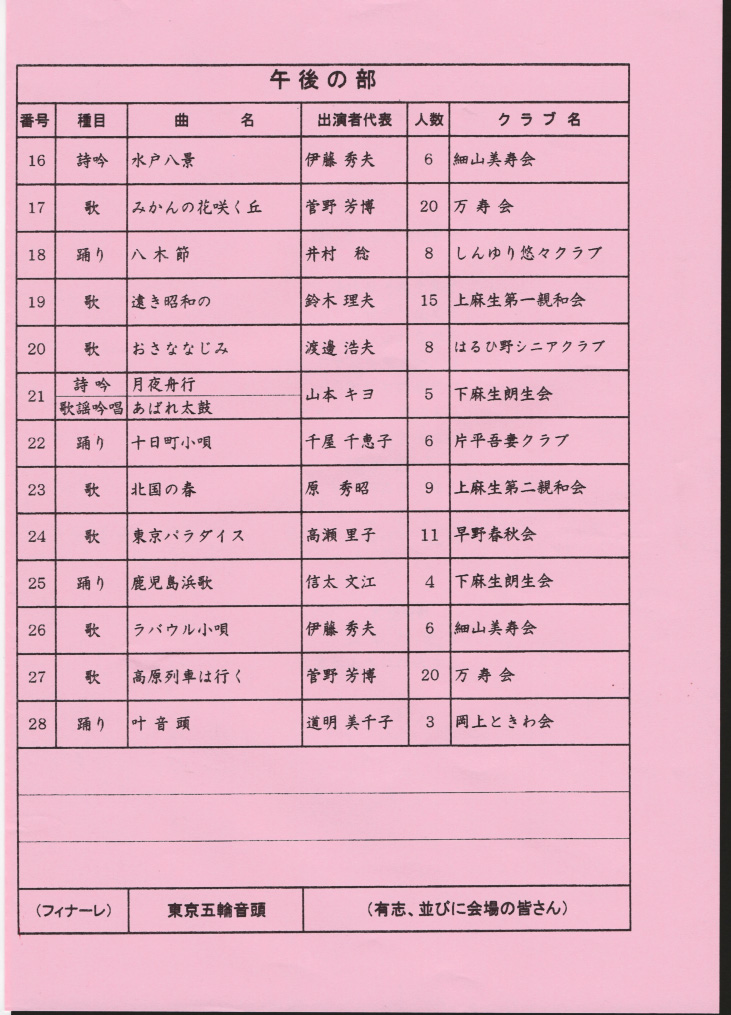 午後の部
番号 種目 曲 名 出演者代表 人数 クラブ名
16 詩吟 水戸八景 伊藤 秀夫 6 細山美寿会
17 歌 みかんの花咲く丘 菅野 芳博 20 万寿会
18 踊り 八木節 井村 稔 8 しんゆり悠々クラブ
19 歌 遠き昭和の 鈴木 理夫 15 上麻生第一親和会
20 歌 おさななじみ 渡邊 浩夫 8 はるひ野シニアクラブ
21 詩吟 月夜舟行 山本 キヨ 5 下麻生朗生会
歌謡吟唱 あばれ太鼓
22 踊り 十日町小唄 千屋 千恵子 6 片平吾妻クラブ
23 歌 北国の春 原 秀昭 9 上麻生第二親和会
24 歌 東京パラダイス 高瀬 里子 11 早野春秋会
25 踊り 鹿児島浜歌 信太 文江 4 下麻生朗生会
26 歌 ラバウル小唄 伊藤 秀夫 6 細山美寿会
27 歌 高原列車は行く 菅野 芳博 20 万寿会
28 踊り 叶音頭 道明 美千子 3 岡上ときわ会
(フィナーレ) 東京五輪音頭 (有志、並びに会場の皆さん)